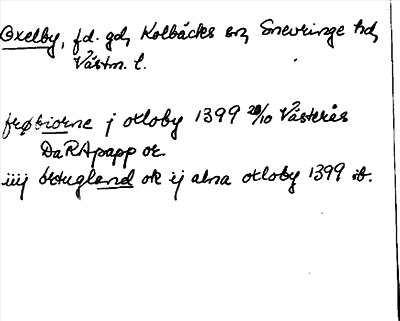 Oxelby, fd. gd, Kolbäcks sn, Snevringe hd,
Västm. l.
frøbiorne j oxloby 1399 20/10 Västerås
DaRApapp or.
iiij örtugland ok ij alna oxloby 1399 ib.